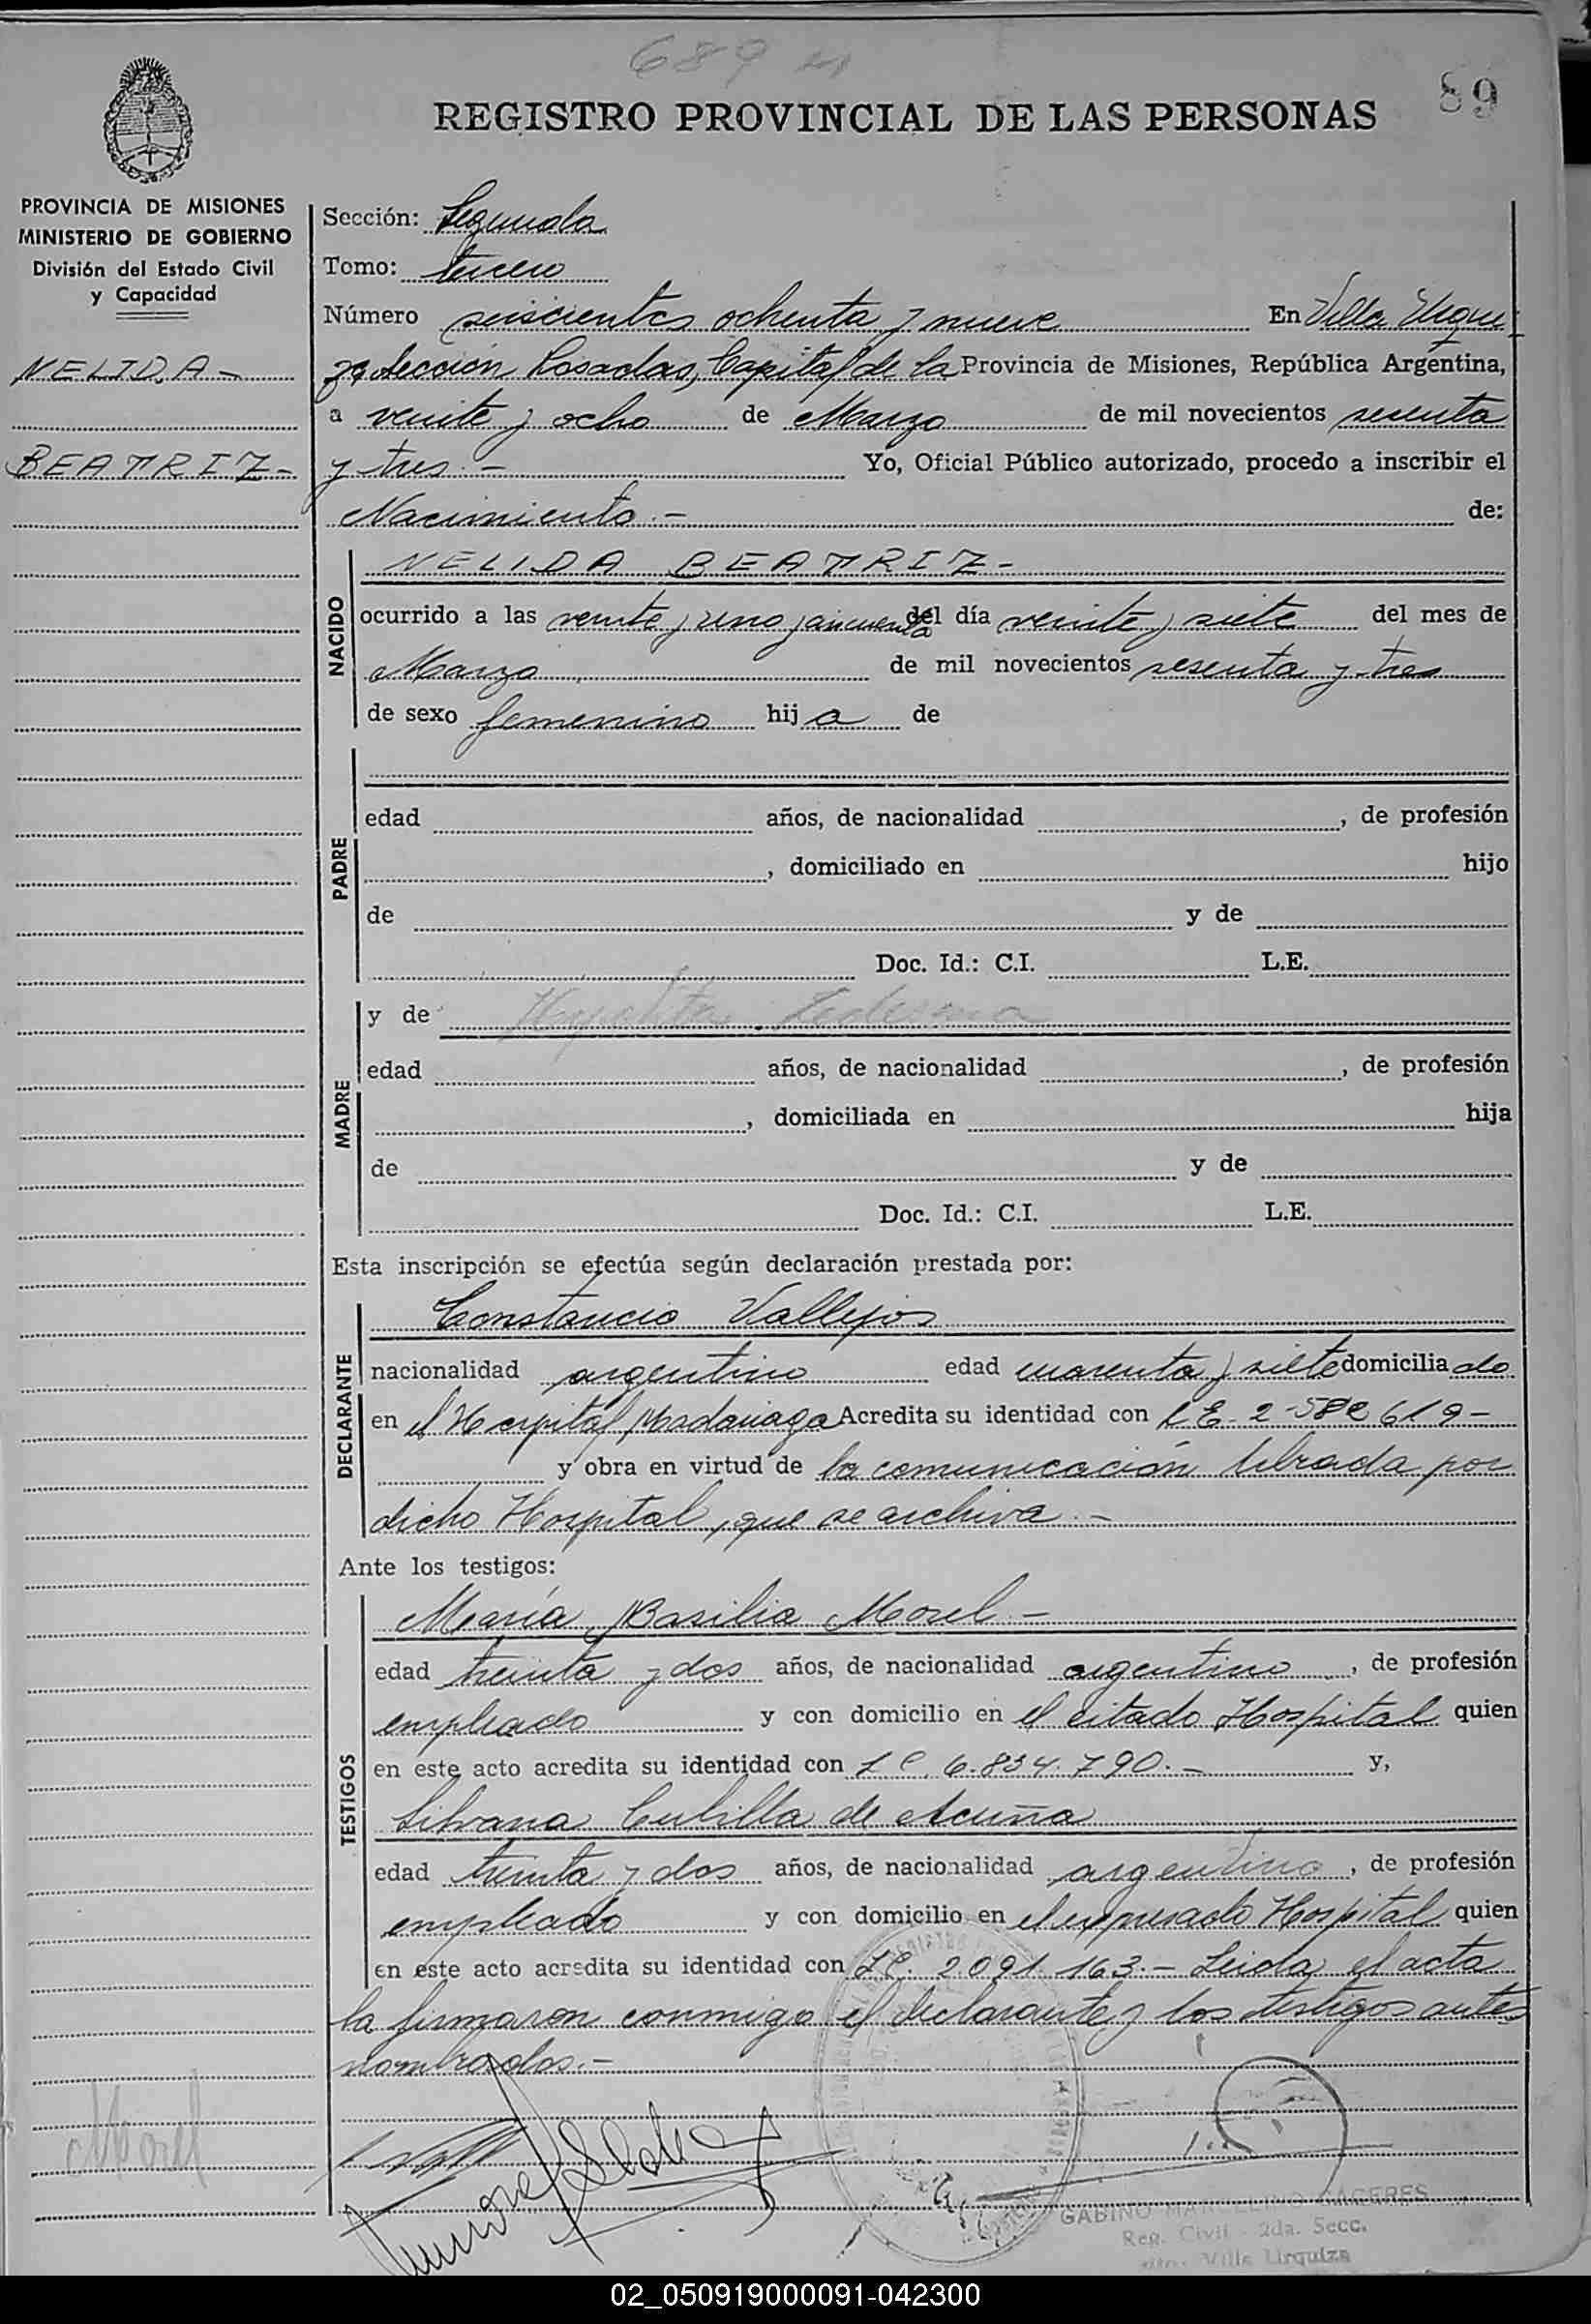 689
89
REGISTRO PROVINCIAL DE LAS PERSONAS
PROVINCIA DE MISIONES
MINISTERIO DE GOBIERNO
División del Estado Civil
y Capacidad
NELIDA -
BEATRIZ -
Sección: Segunda
Tomo: tercero
Número seiscientos ochenta y nueve En Villa Urqui
za Sección Posadas, Capital de la Provincia de Misiones, República Argentina,
a veinte y ocho de Marzo de mil novecientos sesenta
y tres.- Yo, Oficial Público autorizado, procedo a inscribir el
Nacimiento.- de:
NACIDO
NELIDA BEATRIZ -
ocurrido a las veinte y uno y cincuenta del día veinte y siete del mes de
Marzo de mil novecientos sesenta y tres
de sexo femenino hija de
PADRE
edad años, de nacionalidad , de profesión
, domiciliado en hijo
de y de
Doc. Id.: C.I. L.E.
MADRE
y de Hypolita Ledesma
edad años, de nacionalidad , de profesión
, domiciliada en hija
de y de
Doc. Id.: C.I. L.E.
Esta inscripción se efectúa según declaración prestada por:
DECLARANTE
Constancio Vallejos
nacionalidad argentino edad cuarenta y siete domiciliado
en el Hospital Madariaga Acredita su identidad con L E. 2-582619-
y obra en virtud de la comunicación librada por
dicho Hospital, que se archiva.-
Ante los testigos:
TESTIGOS
María Basilia Morel -
edad treinta y dos años, de nacionalidad argentino, de profesión
empleado y con domicilio en el citado Hospital quien
en este acto acredita su identidad con L C. 6.834.790.- y,
Silvana Cubilla de Acuña
edad treinta y dos años, de nacionalidad argentino, de profesión
empleado y con domicilio en el expresado Hospital quien
en este acto acredita su identidad con LC. 2.091.163.- Leida el acta
la firmaron conmigo el declarante y los testigos antes
nombrados.-
Morel
GABINO MARCELINO CACERES
Reg. Civil - 2da. Secc.
Villa Urquiza
02_050919000091-042300